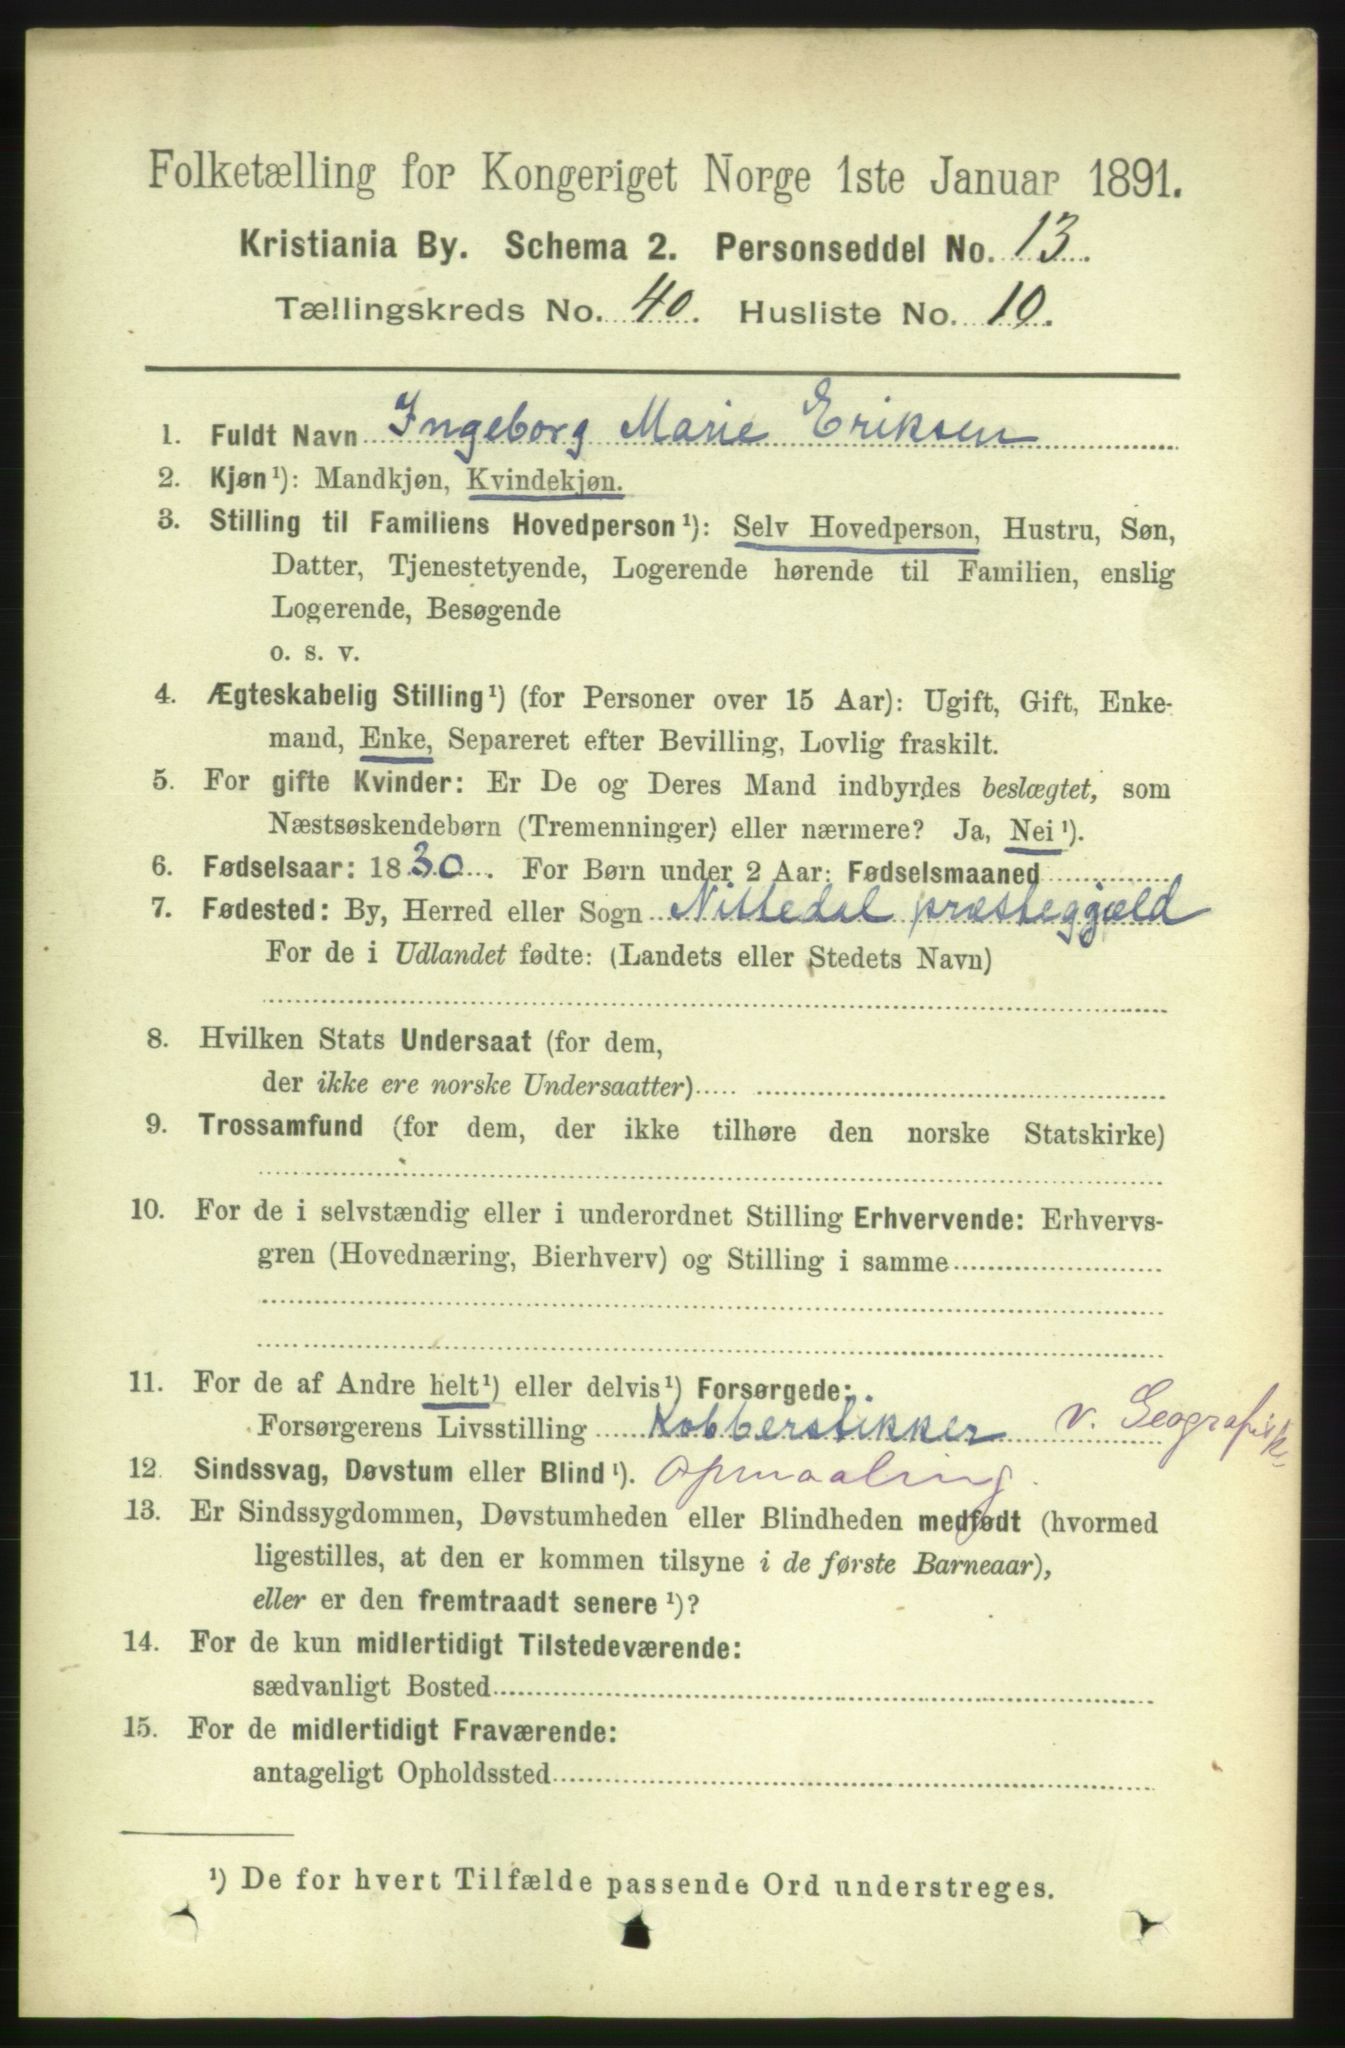 Folketælling for Kongeriget Norge 1ste Januar 1891.
Kristiania By. Schema 2. Personseddel No. 13.
Tællingskreds No. 40. Husliste No. 10.
1. Fuldt Navn Ingeborg Marie Eriksen
2. Kjøn¹): Mandkjøn, Kvindekjøn.
3. Stilling til Familiens Hovedperson¹): Selv Hovedperson, Hustru, Søn,
Datter, Tjenestetyende, Logerende hørende til Familien, enslig
Logerende, Besøgende
o. s. v.
4. Ægteskabelig Stilling¹) (for Personer over 15 Aar): Ugift, Gift, Enke-
mand, Enke, Separeret efter Bevilling, Lovlig fraskilt.
5. For gifte Kvinder: Er De og Deres Mand indbyrdes beslægtet, som
Næstsøskendebørn (Tremenninger) eller nærmere? Ja, Nei¹).
6. Fødselsaar: 1830. For Børn under 2 Aar: Fødselsmaaned
7. Fødested: By, Herred eller Sogn Nittedal præsteggjæld
For de i Udlandet fødte: (Landets eller Stedets Navn)
8. Hvilken Stats Undersaat (for dem,
der ikke ere norske Undersaatter)
9. Trossamfund (for dem, der ikke tilhøre den norske Statskirke)
10. For de i selvstændig eller i underordnet Stilling Erhvervende: Erhvervs-
gren (Hovednæring, Bierhverv) og Stilling i samme
11. For de af Andre helt¹) eller delvis¹) Forsørgede:
Forsørgerens Livsstilling Kobberstikker v. Geografisk
12. Sindssvag, Døvstum eller Blind¹). opmaaling.
13. Er Sindssygdommen, Døvstumheden eller Blindheden medfødt (hvormed
ligestilles, at den er kommen tilsyne i de første Barneaar),
eller er den fremtraadt senere¹)?
14. For de kun midlertidigt Tilstedeværende:
sædvanligt Bosted
15. For de midlertidigt Fraværende:
antageligt Opholdssted
¹) De for hvert Tilfælde passende Ord understreges.